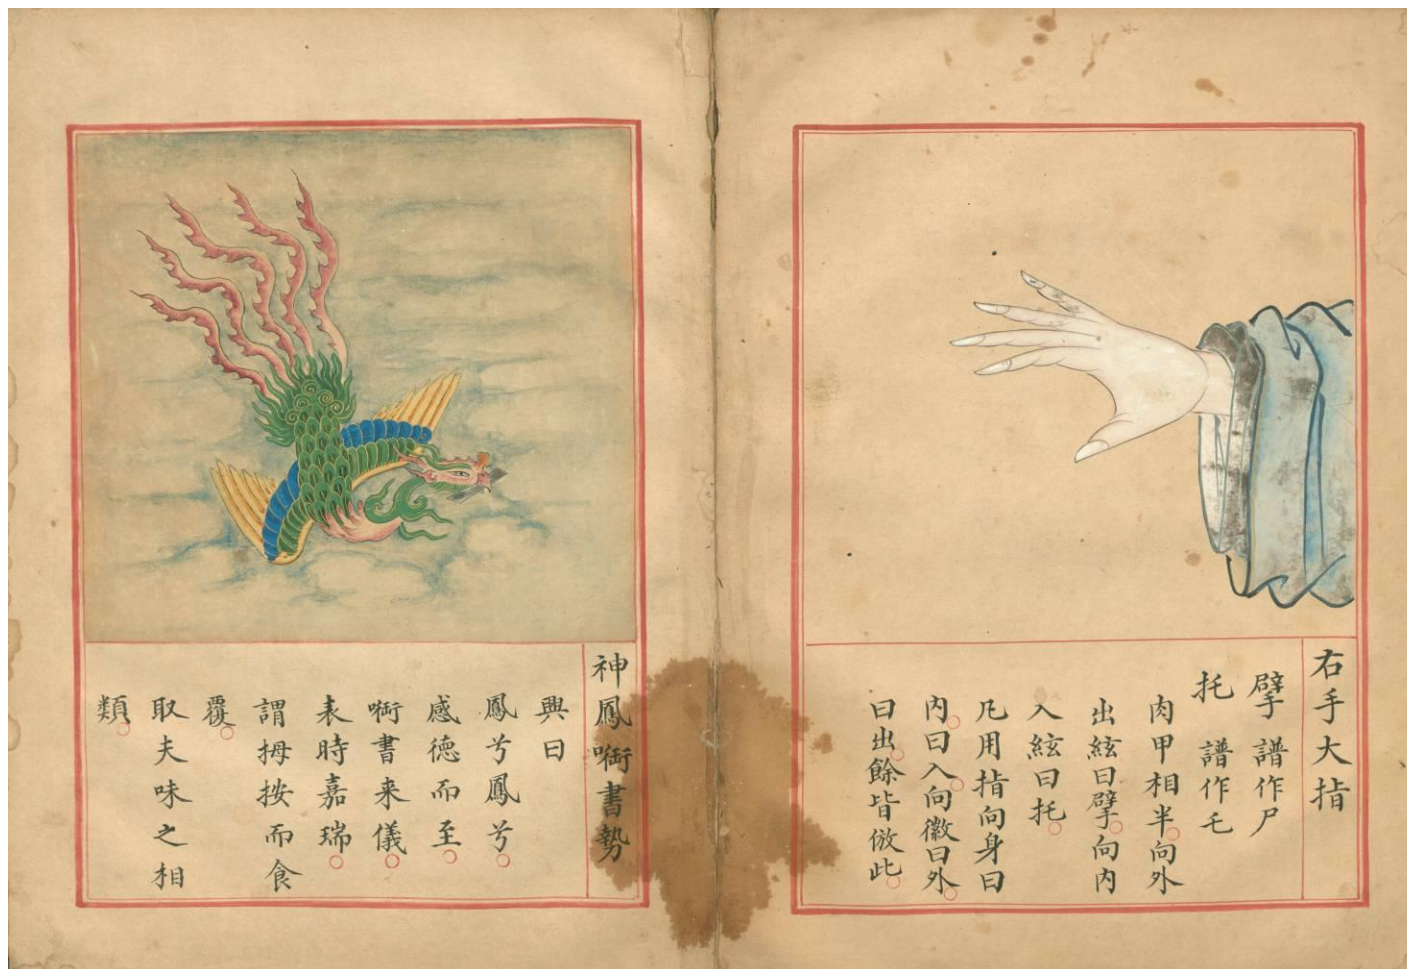 右手大指
擘 譜作尸
托 譜作乇
肉甲相半向外
出絃曰擘向内
入絃曰托
凢用指向身曰
内曰入向徽曰外
曰出餘皆倣此
神鳳啣書勢
興曰
鳳兮鳳兮
感徳而至
啣書来儀
表時嘉瑞
謂拇按而食
覆
取夫味之相
類